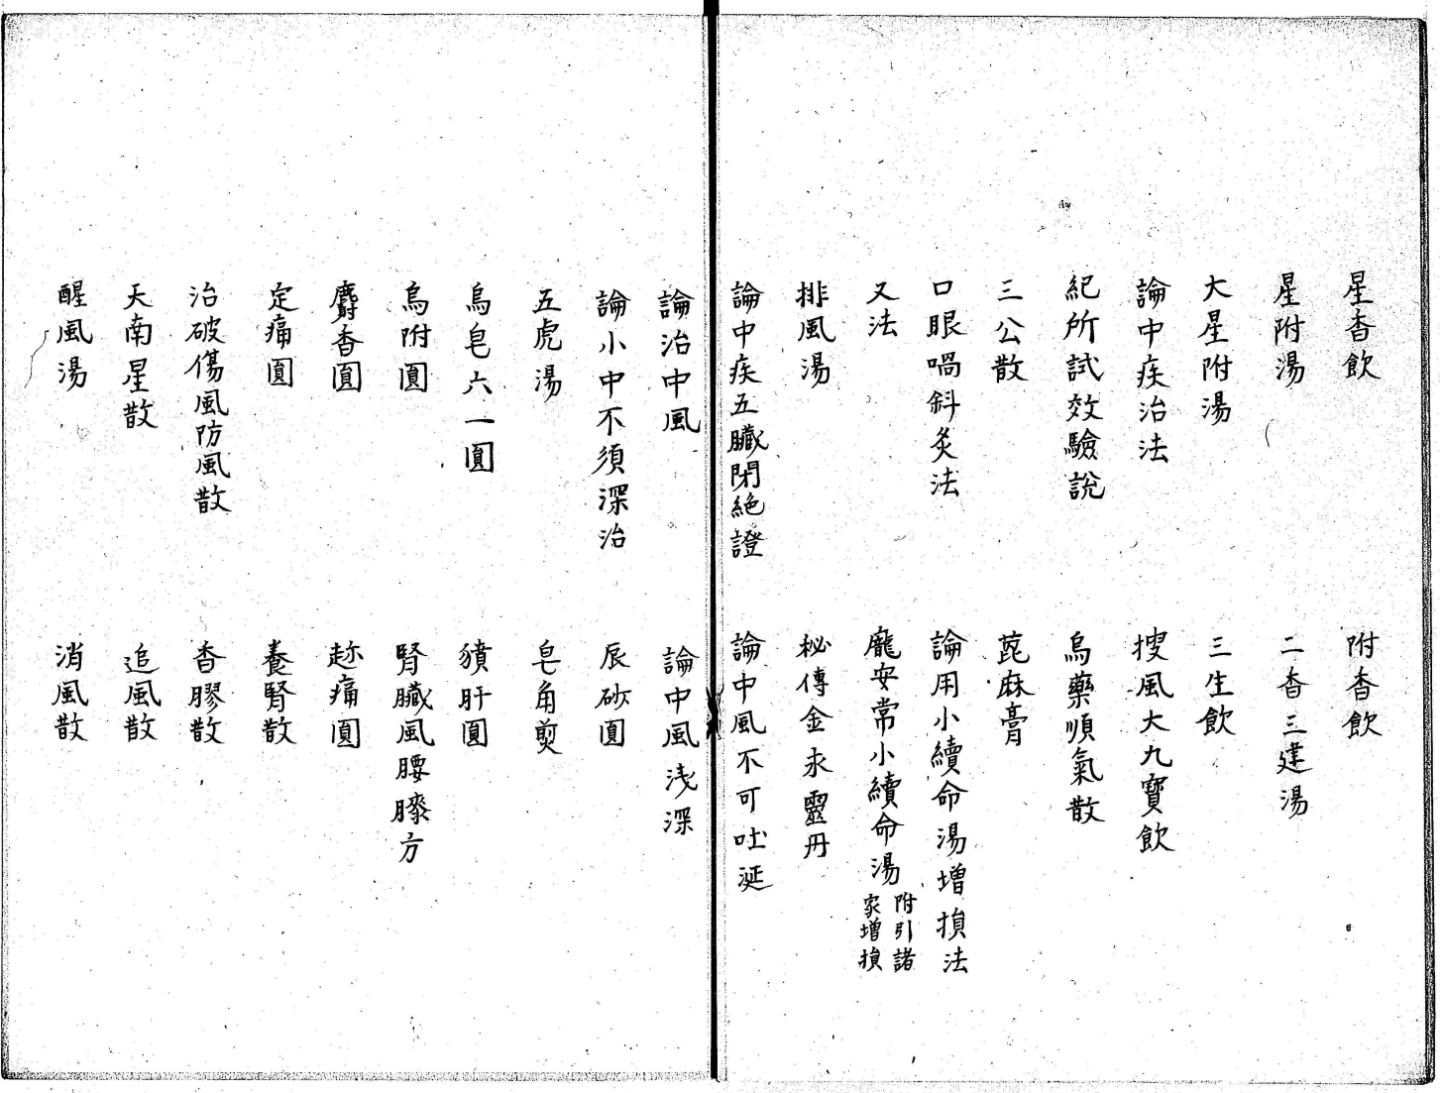 星香飲　附香飲
星附湯　二香三建湯
大星附湯　三生飲
論中疾治法　搜風大九寶飲
紀所試效驗說　烏藥順氣散
三公散　萞麻膏
口眼喎斜灸法　論用小續命湯增損法
又法　龐安常小續命湯附引諸家增損
排風湯　秘傳金永靈丹
論中疾五臟閉絶證　論中風不可吐涎
論治中風　論中風淺深
論小中不須深治　辰砂圓
五虎湯　皂角煎
烏皂六一圓　獖肝圓
烏附圓　腎臟風腰膝方
麝香圓　趂痛圓
定痛圓　養腎散
治破傷風防風散　香膠散
天南星散　追風散
醒風湯　消風散